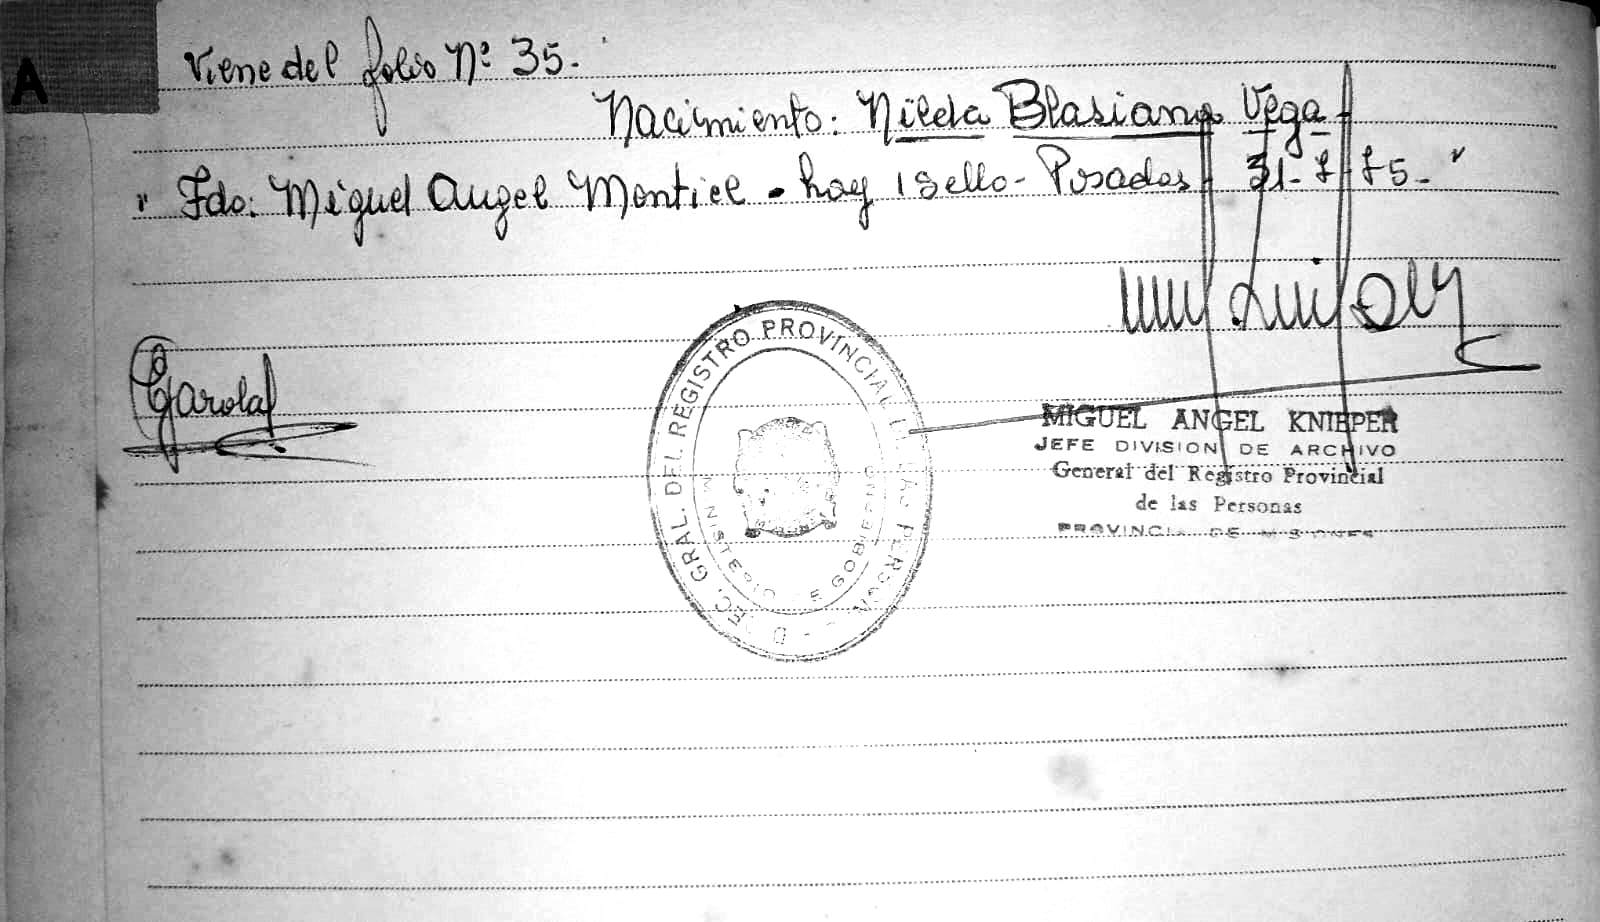 A
Viene del folio Nº 35.
Nacimiento: Nilda Blasiana Vega
" Fdo: Miguel Angel Montiel - hay 1 sello - Posadas 31- 7- 75.- "
Garola
DIREC. GRAL. DEL REGISTRO PROVINCIAL DE LAS PERSONAS
MINISTERIO DE GOBIERNO
MIGUEL ANGEL KNIEPER
JEFE DIVISION DE ARCHIVO
General del Registro Provincial
de las Personas
PROVINCIA DE MISIONES